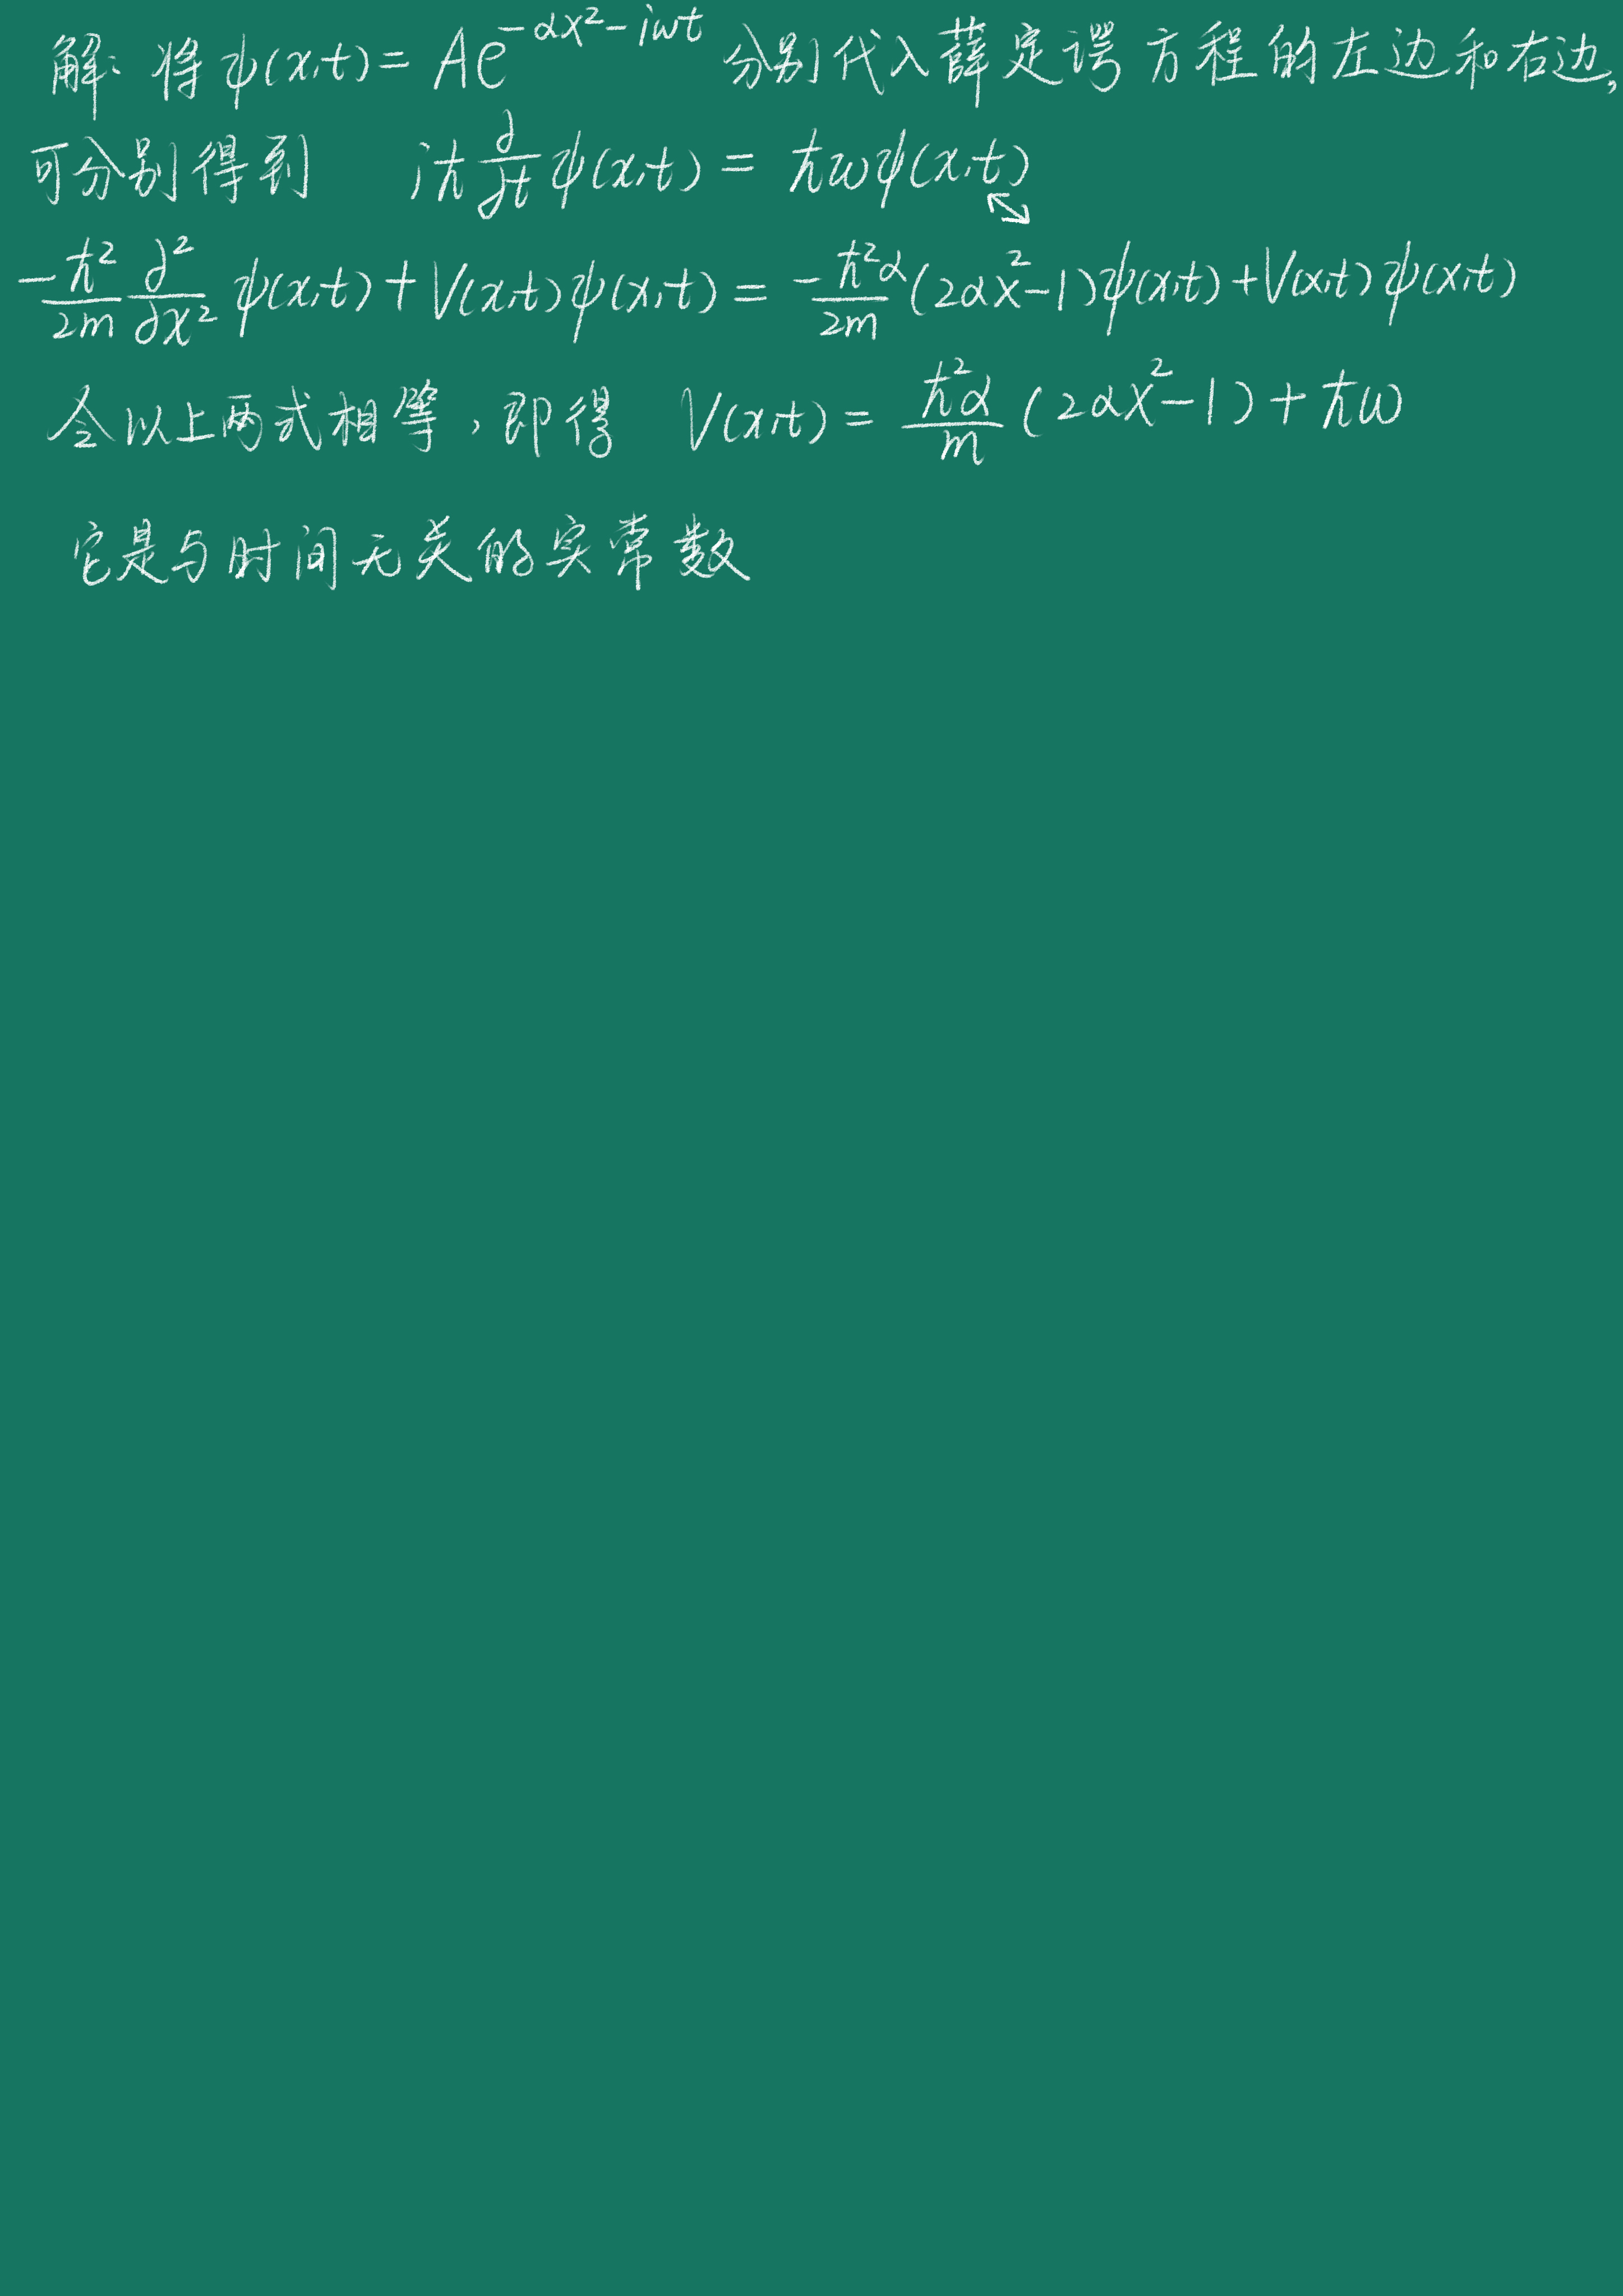 解: 将 ψ(x,t) = Ae^{-αx²-iωt} 分别代入薛定谔方程的左边和右边,
可分别得到 iħ ∂/∂t ψ(x,t) = ħωψ(x,t)
-ħ²/2m ∂²/∂x² ψ(x,t) + V(x,t)ψ(x,t) = -ħ²α/2m (2αx²-1)ψ(x,t) + V(x,t)ψ(x,t)
令以上两式相等,即得 V(x,t) = ħ²α/m (2αx²-1) + ħω
它是与时间无关的实常数